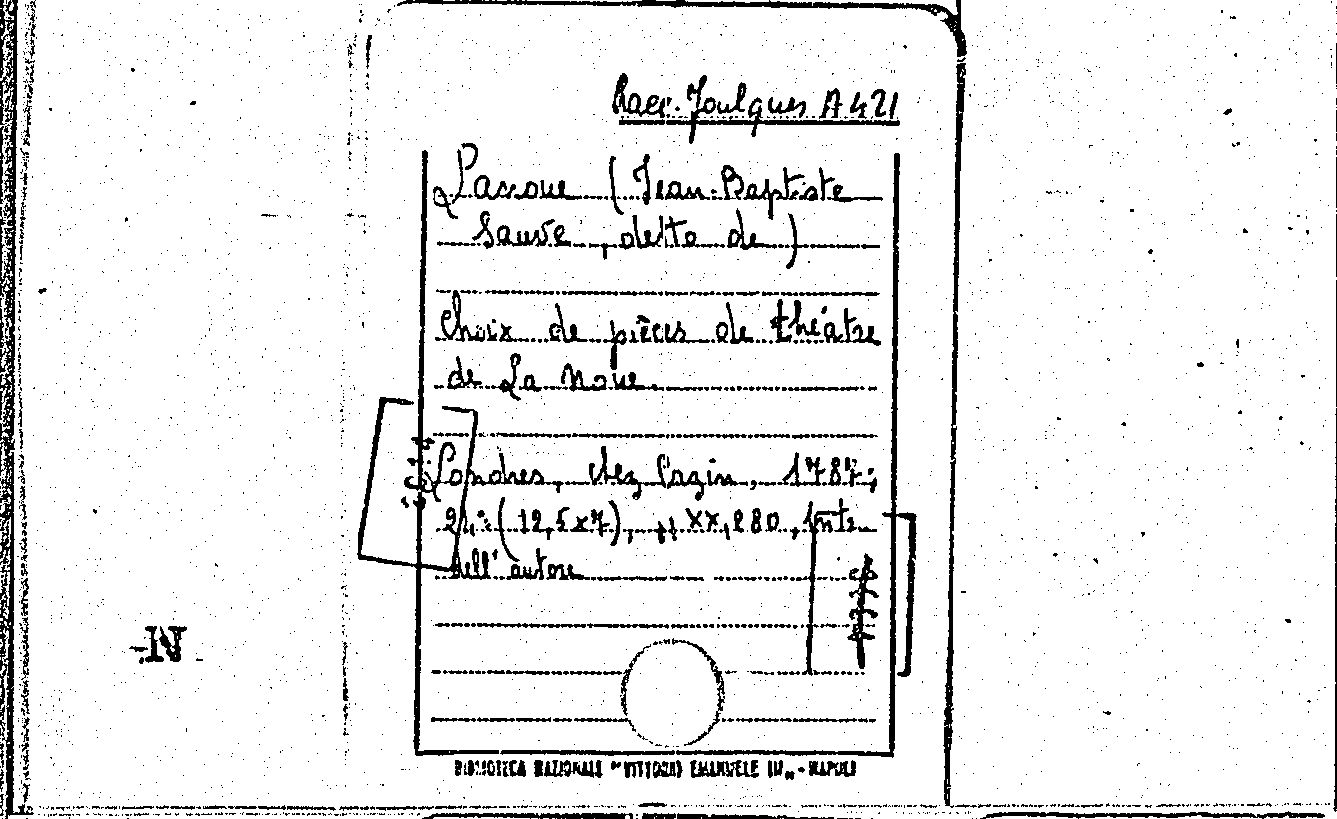 Racc. Foulques A 421
Lanoue (Jean-Baptiste
Sauvé, detto de)
Choix de pièces de théâtre
de La Noue.
Londres, chez Cazin, 1787;
24° (12,5x7), pp. XX, 280, 1ntr.
dell'autore
BIBLIOTECA NAZIONALE "VITTORIO EMANUELE III" - NAPOLI